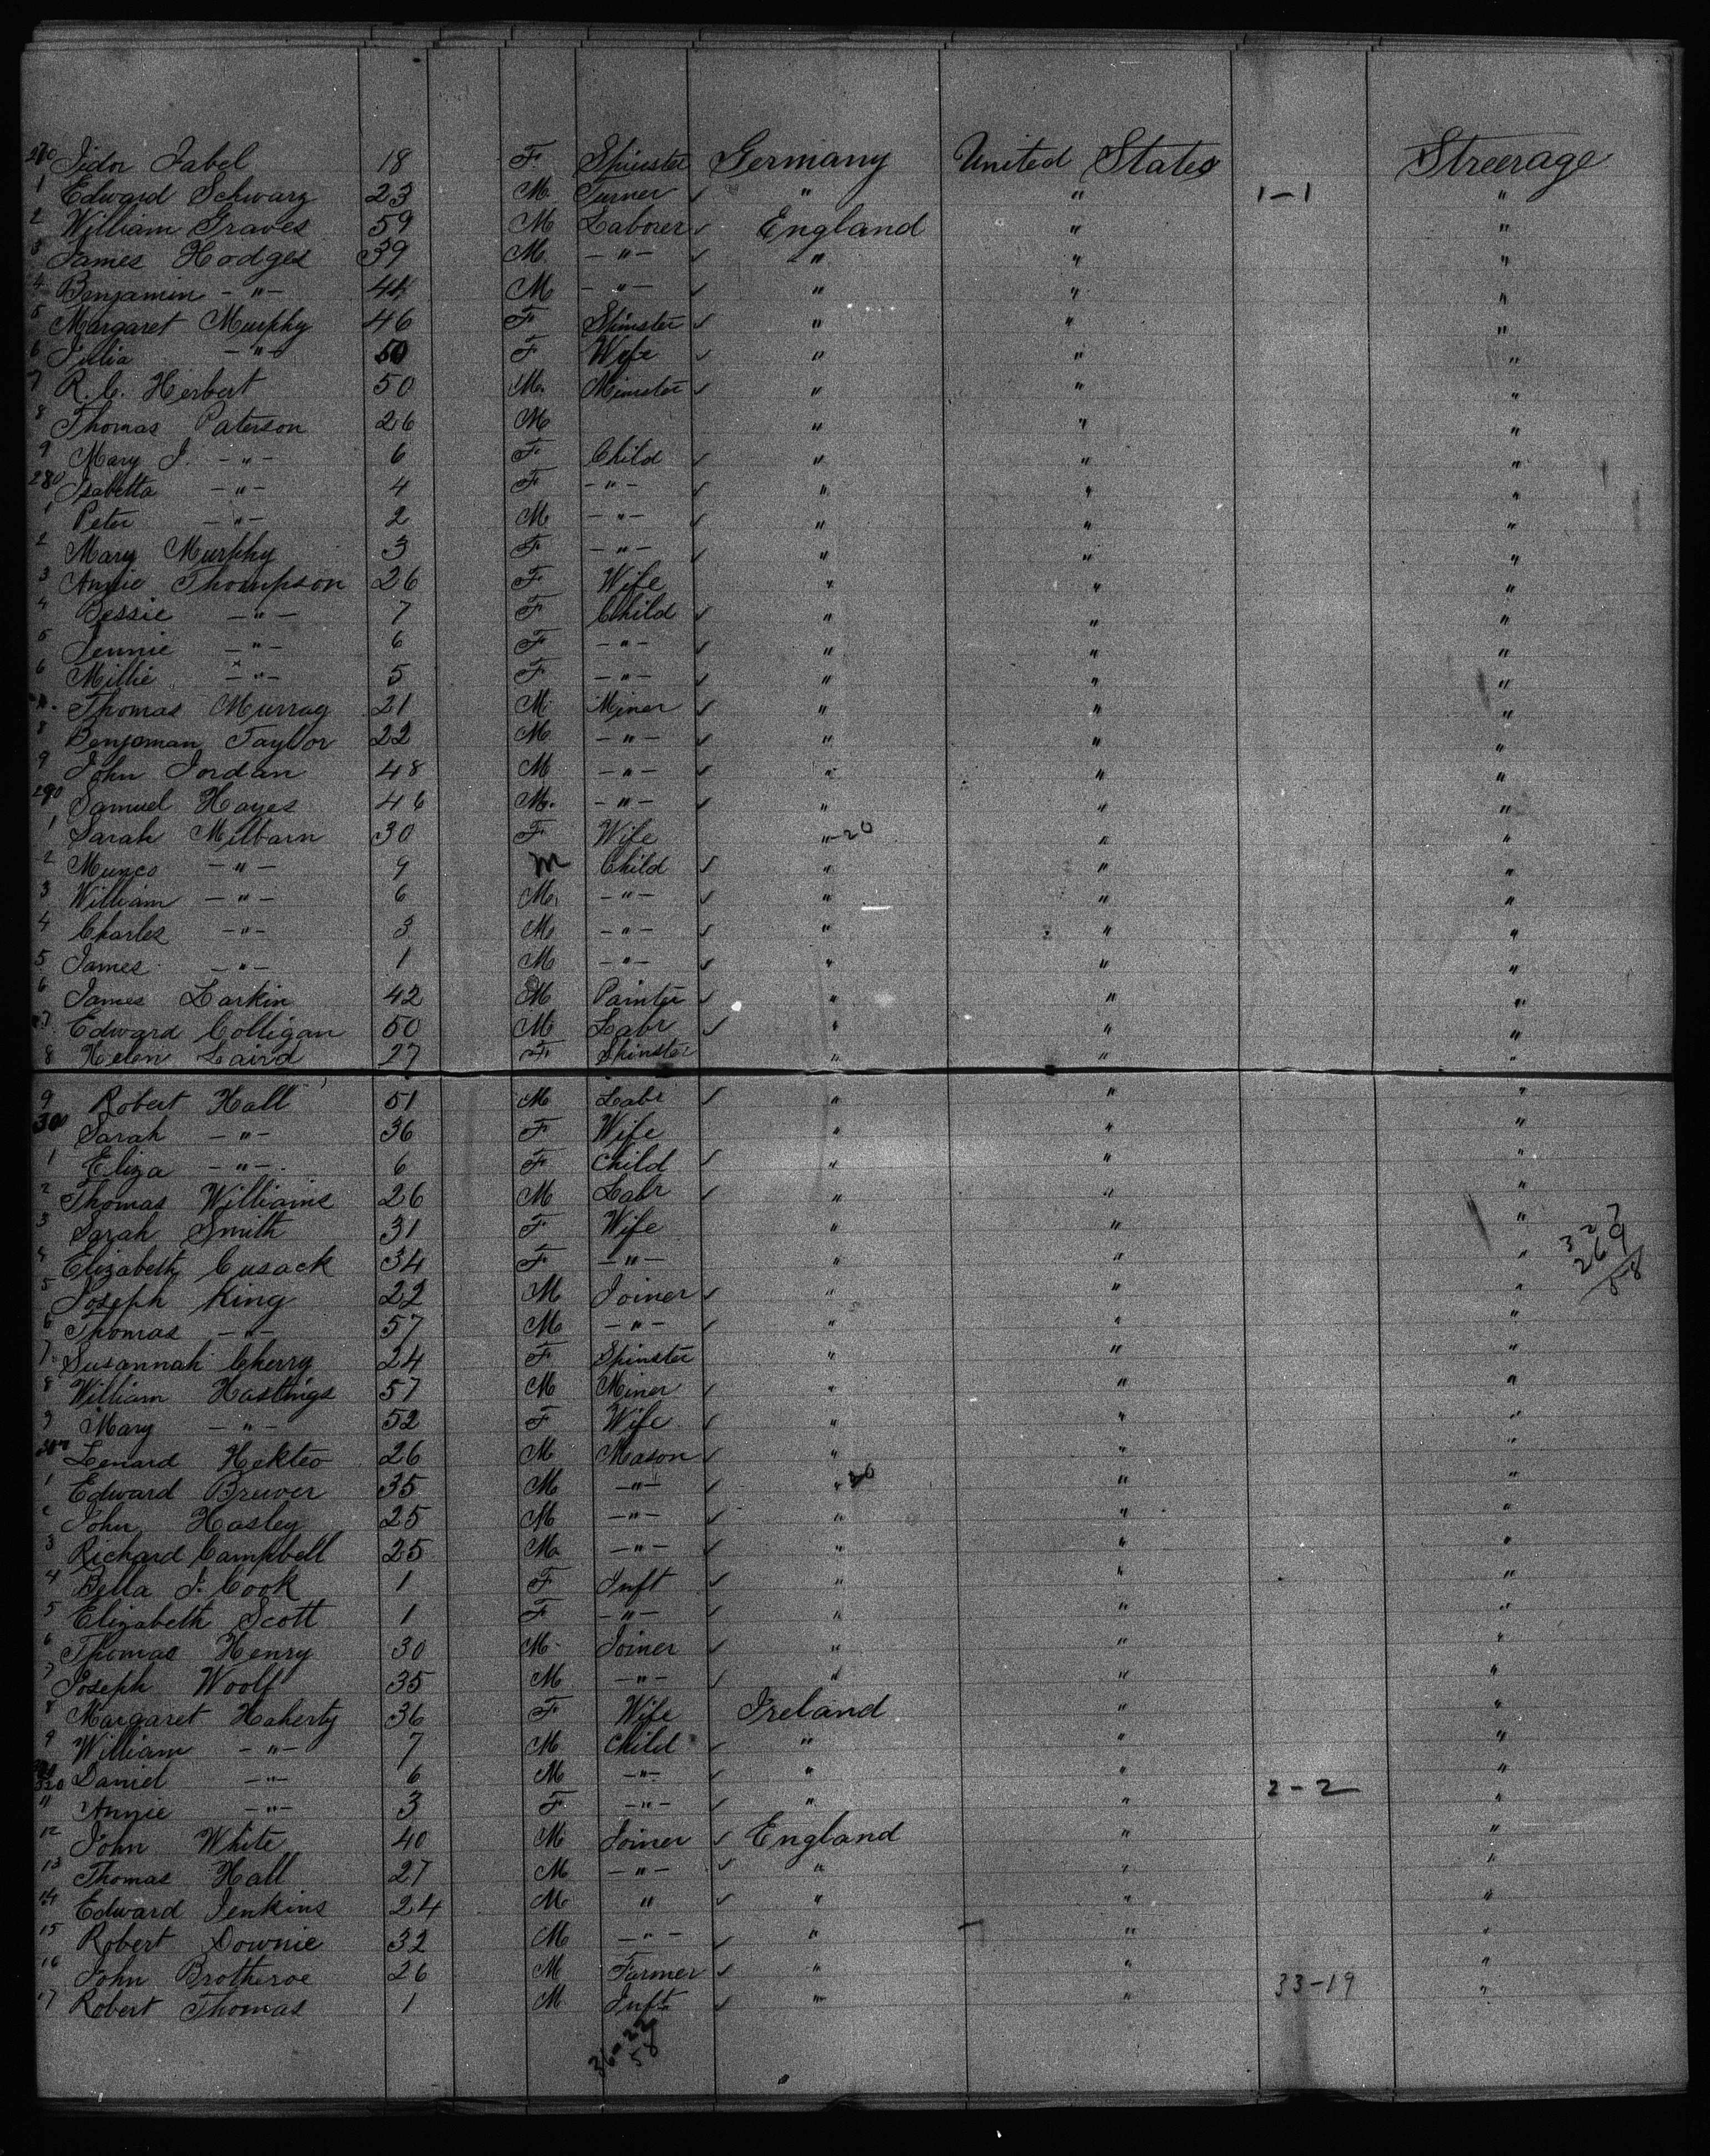 270 Isidor Jabel 18 F Spinster Germany United States Streerage
1 Edward Schwarz 23 M Turner ✓ " " 1-1 "
2 William Graves 59 M Laborer ✓ England " "
3 James Hodges 39 M. -"- ✓ " " "
4 Benjamin -"- 44 M -"- ✓ " " "
5 Margaret Murphy 46 F Spinster ✓ " " "
6 Julia -"- 50 F Wife ✓ " " "
7 R. C. Herbert 50 M. Minister ✓ " " "
8 Thomas Paterson 26 M " " "
9 Mary J. -"- 6 F Child ✓ " " "
280 Isabella -"- 4 F -"- ✓ " " "
1 Peter -"- 2 M -"- ✓ " " "
2 Mary Murphy 3 F -"- ✓ " " "
3 Annie Thompson 26 F Wife " " "
4 Bessie -"- 7 F Child ✓ " " "
5 Jennie -"- 6 F -"- ✓ " " "
6 Millie -"- 5 F -"- ✓ " " "
Thomas Murray 21 M Miner ✓ " " "
8 Benjoman Taylor 22 M -"- ✓ " " "
9 John Jordan 48 M -"- ✓ " " "
290 Samuel Hayes 46 M. -"- ✓ " " "
1 Sarah Milbarn 30 F Wife "-20 " "
2 -"- 9 M Child ✓ " " "
3 William -"- 6 M. -"- ✓ " " "
4 Charles -"- 3 M -"- ✓ " " "
5 James -"- 1 M -"- ✓ " " "
6 James Larkin 42 M Painter ✓ " " "
7 Edward Colligan 50 M Labr ✓ " " "
8 Helen Laird 27 F Spinster " " "
9 Robert Hall 51 M Labr ✓ " " "
300 Sarah -"- 36 F Wife " " "
1 Eliza -"- 6 F Child ✓ " " "
2 Thomas Williams 26 M Labr ✓ " " "
3 Sarah Smith 31 F Wife " " " 327
4 Elizabeth Cusack 34 F -"- " " " 269
5 Joseph King 22 M Joiner ✓ " " " 58
6 Thomas -"- 57 M -"- ✓ " " "
7 Susannah Cherry 24 F Spinster " " "
8 William Hastings 57 M Miner ✓ " " "
9 Mary -"- 52 F Wife ✓ " " "
Lenard Hekteo 26 M Mason ✓ " " "
1 Edward Brewer 35 M -"- ✓ " " "
2 John Hasley 25 M -"- ✓ " " "
3 Richard Campbell 25 M -"- ✓ " " "
4 Bella J. Cook 1 F Inft ✓ " " "
5 Elizabeth Scott 1 F -"- ✓ " " "
6 Thomas Henry 30 M Joiner ✓ " " "
7 Joseph Woolf 35 M -"- ✓ " " "
8 Margaret Haherty 36 F Wife Ireland " "
9 William -"- 7 M Child ✓ " " "
320 Daniel -"- 6 M -"- ✓ " " 2-2 "
11 Annie -"- 3 F -"- ✓ " " "
12 John White 40 M Joiner ✓ England " "
13 Thomas Hall 27 M -"- ✓ " " "
14 Edward Jenkins 24 M " ✓ " " "
15 Robert Downie 32 M -"- ✓ " " "
16 John Brotheroe 26 M Farmer ✓ " " 33-19 "
17 Robert Thomas 1 M Inft ✓ " " "
36-22
58